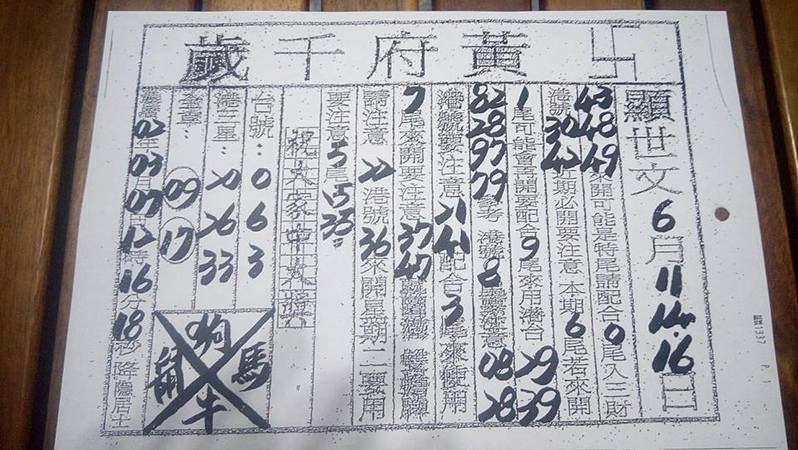 卍黃府千歲
顯世文 6月 11 14 16 日
43 48 49 來開可能是特尾請配合 0 尾入三財
港號 30 42 近期必開要注意 本期 6 尾若來開
1 尾可能會再開要配合 9 尾來用港台 29 39
82 28 97 79 參考 港號 8 尾 注意 08 28
港號要注意 21 41 配合 3 尾來使用
7 尾來開要注意 37 47
請注意 22 港號 36 來開星期二要用
要注意 5 尾 15 35
祝大家中大獎
台號： 0 6 3
港三星： 20 26 33
全車： 09 17
02 年 03 月 07 12 時 16 分 18 秒 降 隱居士
狗
馬
牛
1337
P. 1